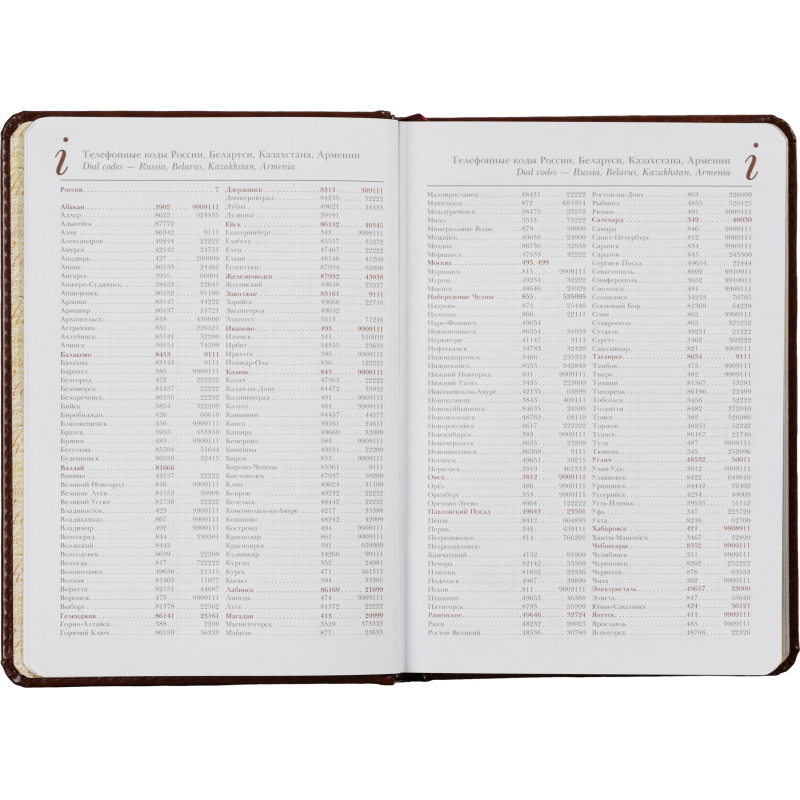 i
Телефонные коды России, Беларуси, Казахстана, Армении
Dial codes — Russia, Belarus, Kazakhstan, Armenia
Россия 7
Абакан 3902 9909111
Адлер 8622 924455
Адыгейск 87772
Азов 86342 9111
Александров 49244 22222
Амурск 42142 24751
Анадырь 427 200009
Анапа 86133 24462
Ангарск 3955 60901
Анжеро-Судженск 38453 22043
Апшеронск 86152 91100
Арзамас 83147 44222
Армавир 86137 53721
Архангельск 818 430000
Астрахань 851 226521
Ахтубинск 85141 52200
Ачинск 39151 74399
Балаково 8453 9111
Балахна 83144 9111
Барнаул 385 9909111
Белгород 472 222222
Беломорск 81437 22222
Белореченск 86155 22232
Бийск 3854 322209
Биробиджан 426 60610
Благовещенск 416 9909111
Братск 3953 433850
Брянск 483 9909111
Бугульма 85594 51644
Буденновск 86559 32415
Валдай 81666
Ванино 42137 22222
Великий Новгород 816 9909111
Великие Луки 81153 50909
Великий Устюг 81738 22222
Владивосток 423 9909111
Владикавказ 867 9909111
Владимир 492 9909111
Волгоград 844 330301
Волжский 8443
Волгодонск 8639 22200
Вологда 817 722222
Волоколамск 49636 21515
Волхов 81363 11077
Воркута 82151 44687
Воронеж 473 9909111
Выборг 81378 22502
Геленджик 86141 23161
Горно-Алтайск 388 2209
Горячий Ключ 86159 56330
Дзержинск 8313 309111
Димитровград 84235 52222
Дубна 49621 54333
Дудинка 39191
Ейск 86132 40345
Екатеринбург 343 9909111
Елабуга 85557 35272
Елец 47467 22222
Ельня 48146 41209
Ессентуки 87934 62000
Железноводск 87932 43030
Жуковский 49648 23537
Заволжье 83161 9111
Зарайск 49666 22710
Звенигород 49632
Златоуст 3513 71218
Иваново 493 9909111
Ижевск 341 510039
Ирбит 34355 22655
Иркутск 395 9909111
Йошкар-Ола 836 122222
Казань 843 9909111
Калач 47363 22222
Калач-на-Дону 84472 33932
Калининград 401 9909111
Калуга 484 9909111
Камышин 84457 44577
Канск 39161 24611
Кашира 49669 32009
Кемерово 384 9909111
Кинешма 49331 22200
Киров 833 9909111
Кирово-Чепецк 83361 9111
Кисловодск 87937 50209
Клин 49624 31309
Ковров 49232 22222
Козельск 48442 22222
Комсомольск-на-Амуре 4217 35388
Конаково 48242 42009
Кострома 494 9909111
Краснодар 861 9909111
Красноярск 391 659909
Кудымкар 34260 99111
Курган 352 24081
Курск 471 561313
Кызыл 394 33305
Лабинск 86169 21699
Липецк 474 9909111
Луга 81372 22222
Магадан 413 20999
Магнитогорск 3519 373333
Майкоп 877 25633
Телефонные коды России, Беларуси, Казахстана, Армении
Dial codes — Russia, Belarus, Kazakhstan, Armenia
i
Малоярославец 48431 22222
Махачкала 872 681914
Междуреченск 38475 25252
Миасс 3513 73222
Минеральные Воды 879 50009
Можайск 49638 24009
Моздок 86736 32058
Моршанск 47533 32222
Москва 495, 499
Мурманск 815 9909111
Муром 49234 32222
Мценск 48646 25929
Набережные Челны 855 535095
Назрань 873 25440
Нальчик 866 22111
Наро-Фоминск 49634
Невинномысск 86554 31033
Нерюнгри 41147 9111
Нефтекамск 34783 32420
Нижневартовск 3466 235333
Нижнекамск 8555 342848
Нижний Новгород 831 9909111
Нижний Тагил 3435 223009
Николаевск-на-Амуре 42135 63899
Новокузнецк 3843 409111
Новокуйбышевск 84635 24599
Новомосковск 48762 68110
Новороссийск 8617 222222
Новосибирск 383 9909111
Новочеркасск 8635 23209
Новошахтинск 86369 9111
Ногинск 49651 50215
Норильск 3919 461313
Омск 3812 9909111
Орёл 486 9909111
Оренбург 353 9909111
Орехово-Зуево 4964 122222
Павловский Посад 49643 23501
Пенза 8412 664895
Пермь 342 459111
Петрозаводск 814 766201
Петропавловск-
Камчатский 4152 91909
Печоры 82142 53509
Плесецк 81832 22356
Подольск 4967 39899
Псков 811 9909111
Пушкино 49653 46388
Пятигорск 8793 55999
Раменское 49646 32724
Ржев 48232 20023
Ростов Великий 48536 30780
Ростов-на-Дону 863 326609
Рыбинск 4855 520125
Рязань 491 9909111
Салехард 349 46030
Самара 846 9909111
Санкт-Петербург 812 9909111
Саранск 834 9909111
Саратов 845 245500
Сергиев Посад 49654 22444
Севастополь 8692 9910911
Симферополь 3652 9910911
Смоленск 481 9909111
Соликамск 34253 70705
Сосновый Бор 81369 64239
Сочи 862 9909111
Ставрополь 865 325252
Суздаль 49231 21222
Сургут 3462 369222
Сыктывкар 821 9909111
Таганрог 8634 9111
Тамбов 475 9909111
Тверь 482 9909111
Тихвин 81367 13291
Тихорецк 86196 22499
Тобольск 3456 52222
Тольятти 8482 372010
Томск 382 526086
Торжок 48251 52222
Туапсе 86167 21746
Тула 487 9909111
Тюмень 345 252096
Углич 48532 50011
Улан-Удэ 3012 9909111
Ульяновск 8422 649816
Урюпинск 84442 22492
Уссурийск 4234 40009
Усть-Илимск 39535 51112
Уфа 347 225720
Ухта 8216 62700
Хабаровск 421 9908911
Ханты-Мансийск 3467 32899
Чебоксары 8352 9909111
Челябинск 351 9909111
Череповец 8202 522222
Черкесск 878 63553
Чита 302 9909111
Электросталь 49657 33000
Элиста 847 55640
Южно-Сахалинск 424 56121
Якутск 411 9909111
Ярославль 485 9909111
Ясногорск 48766 22326